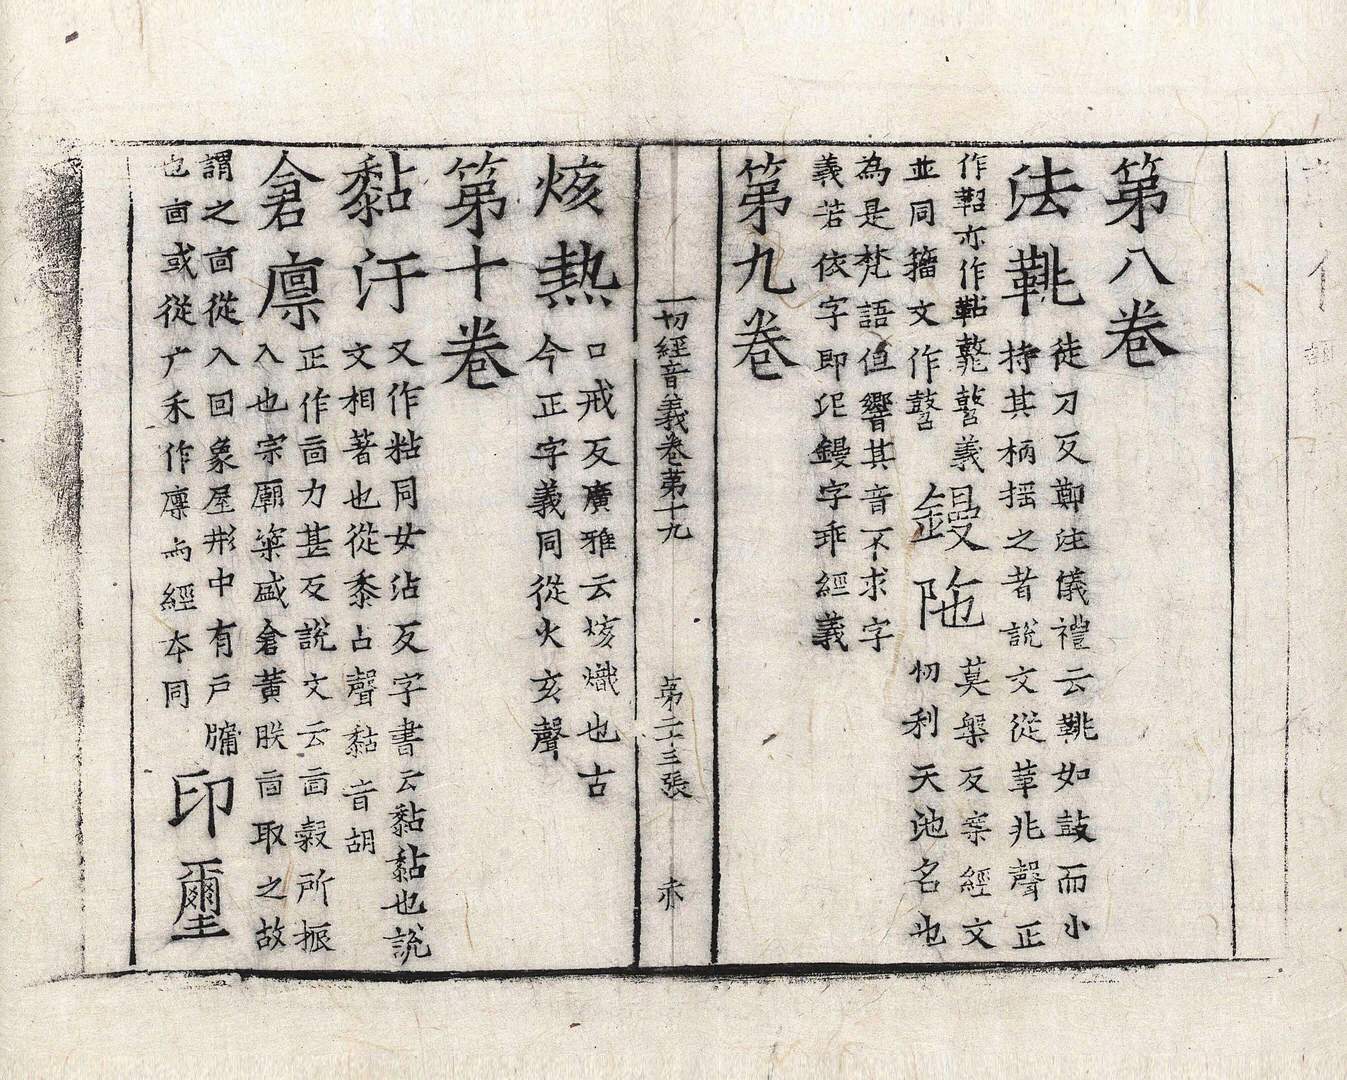 第八卷
法鞉徒刀反鄭注儀禮云鞉如鼓而小
持其柄搖之者說文從革兆聲正
作鞀亦作鞊鼗鼛義鏝陁莫槃反案經文
並同籀文作鼛忉利天池名也
為是梵語但響其音不求字
義若依字即泥鏝字乖經義
第九卷
一切經音義卷第十九 第二十三張
烗熱口戒反廣雅云烗熾也古
今正字義同從火亥聲
第十卷
黏汙又作粘同女沾反字書云黏黏也說
文相著也從黍占聲黏音胡
倉廩正作㐭力甚反說文云㐭糓所振
入也宗廟粢盛倉黃㐭取之故
謂之㐭從入回象屋形中有戶牖印璽
也㐭或從广禾作廩与經本同